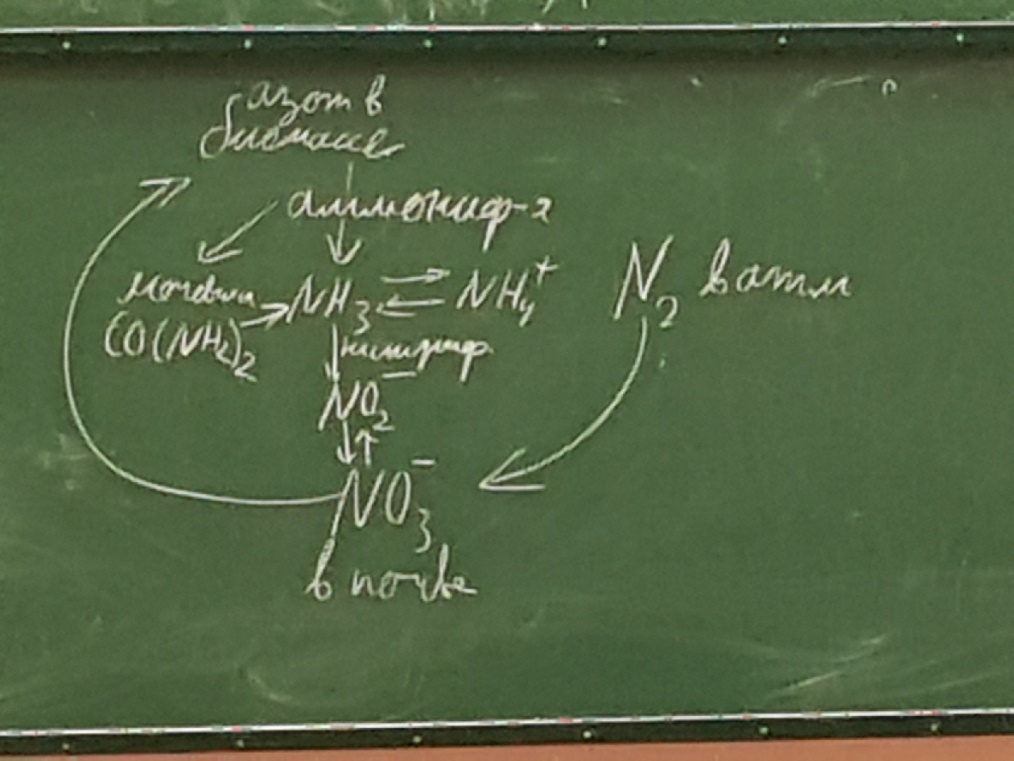 азот в
биомассе
аммониф-я
мочевин
CO(NH₂)₂ → NH₃ ⇄ NH₄⁺
N₂ в атм
нитриф.
NO₂⁻
↓↑
NO₃⁻
в почве